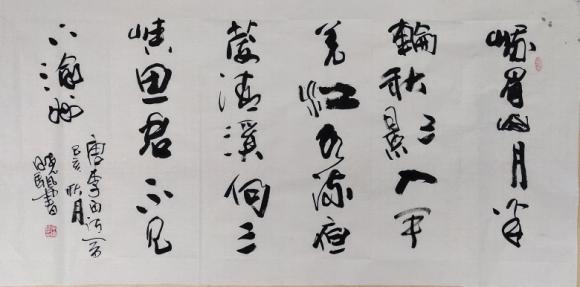 峨眉山月半
輪秋影入平
羌江水流夜
發清溪向三
峽思君不見
下渝州
唐李白诗一首
己亥秋月
書